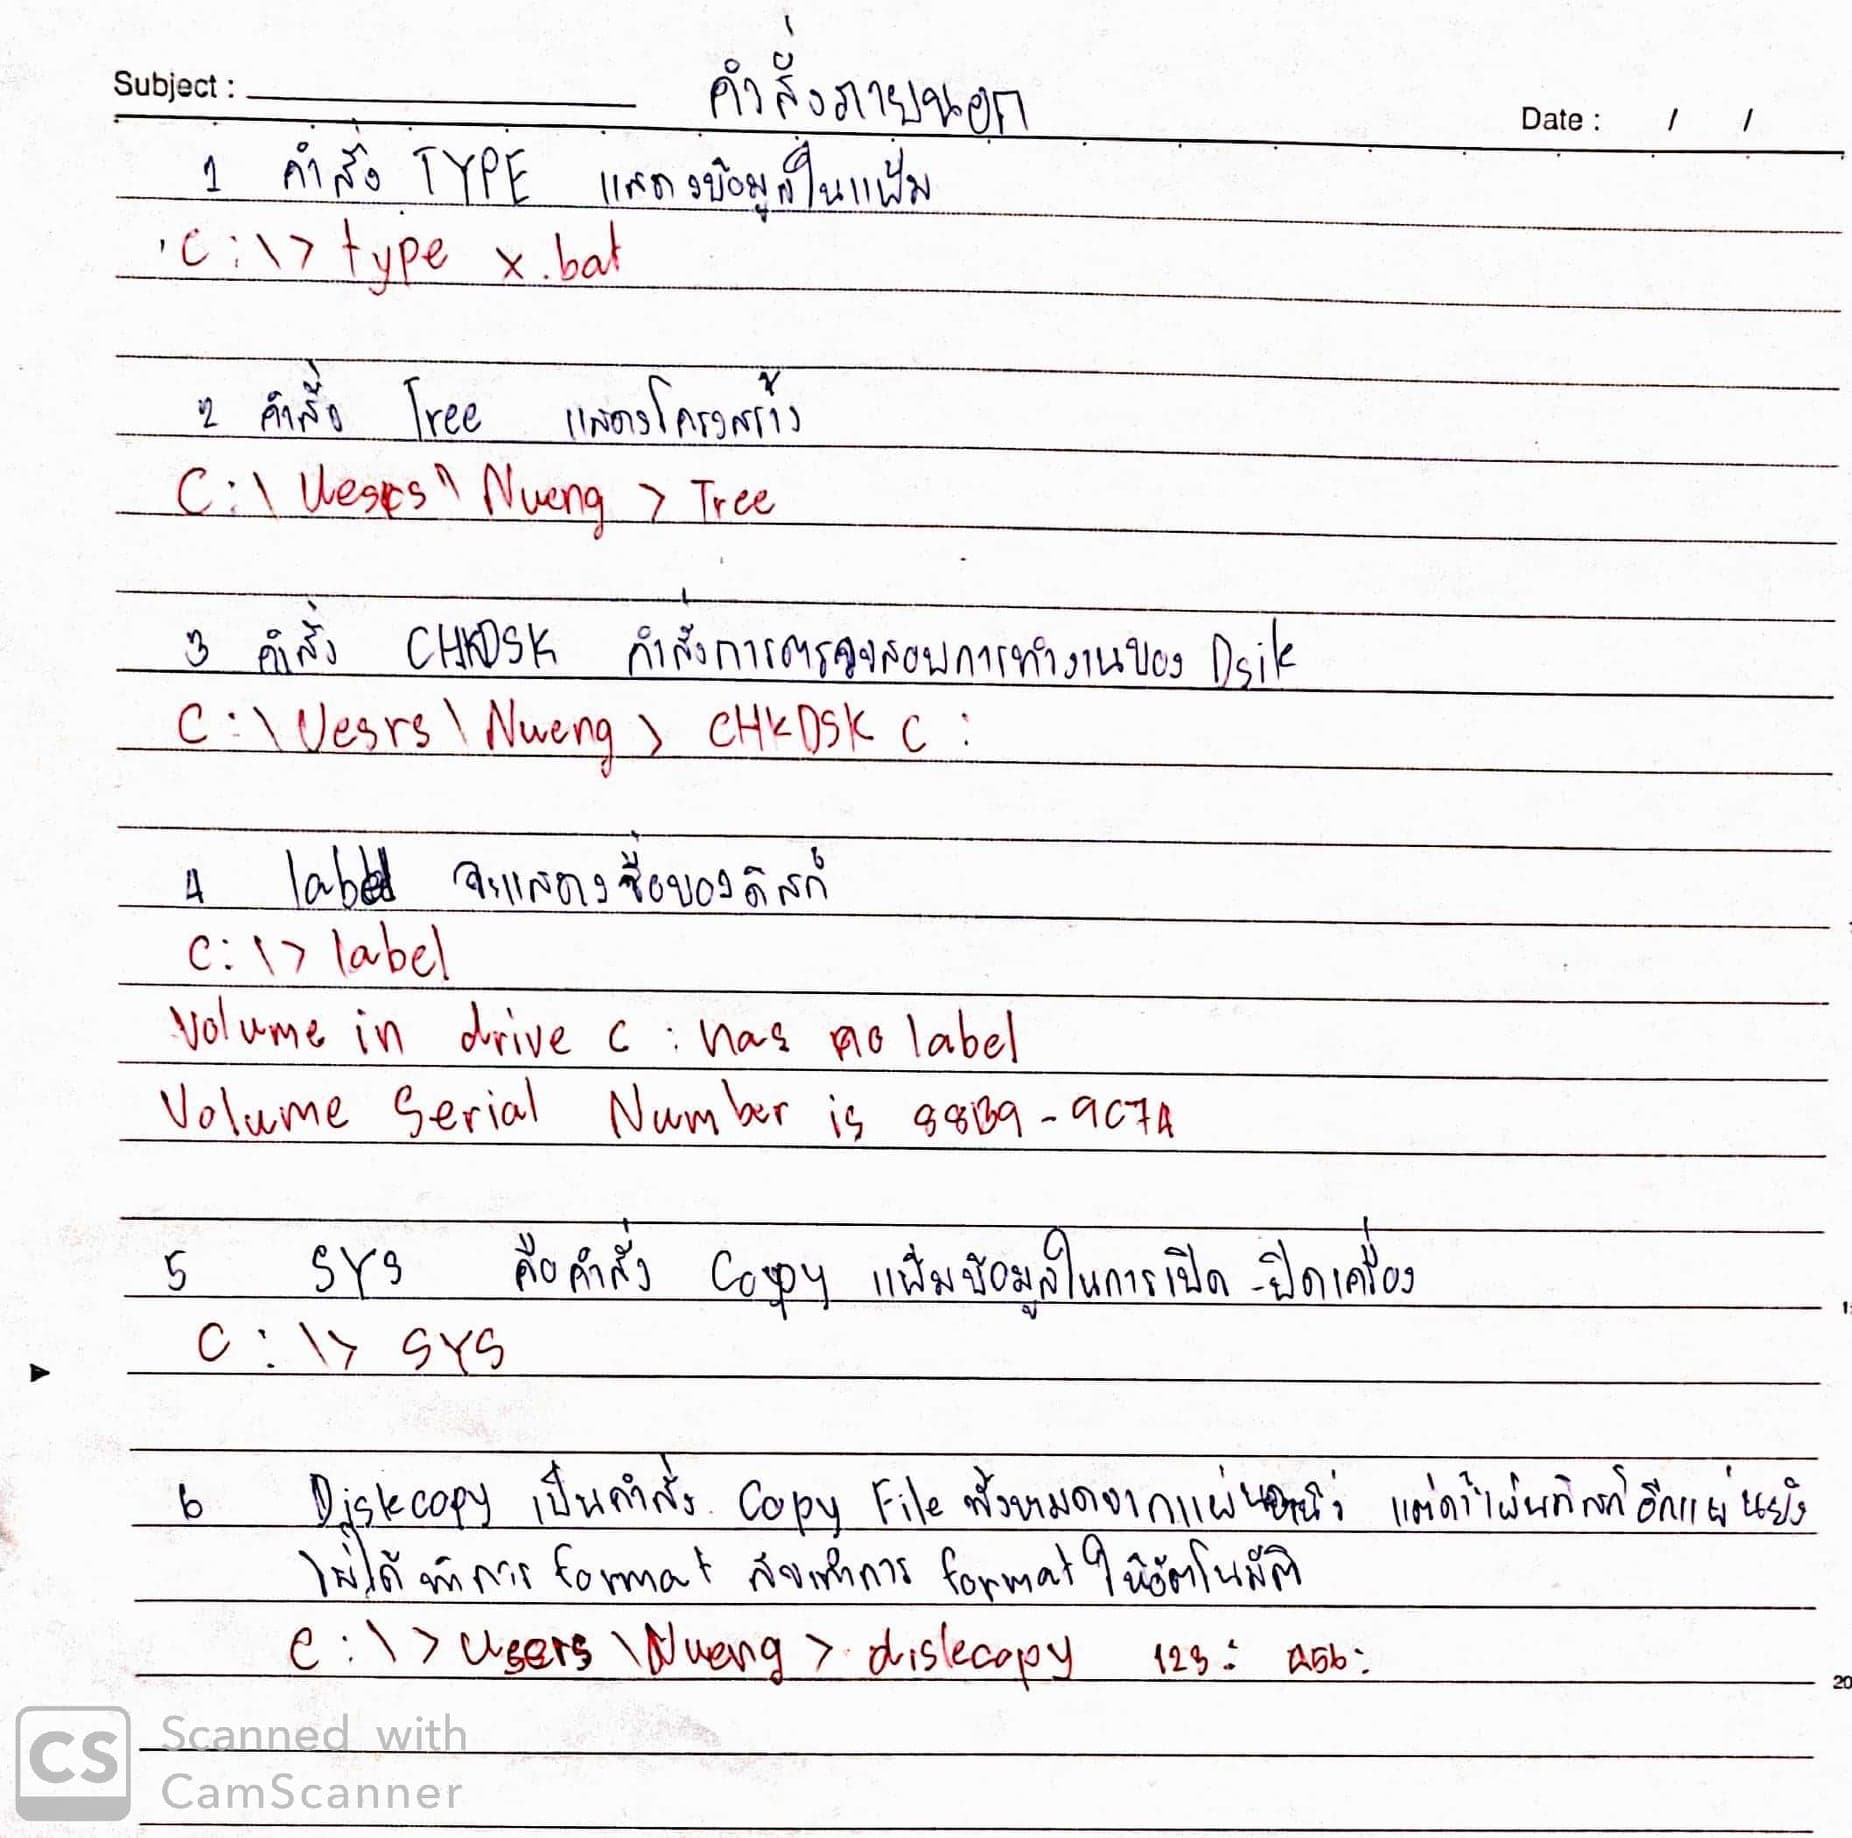 Subject :
คำสั่งภายนอก
Date : / /
1 คำสั่ง TYPE แสดงข้อมูลในแฟ้ม
C:\> type x.bat
2 คำสั่ง Tree แสดงโครงสร้าง
C:\ Uesrs \ Nueng > Tree
3 คำสั่ง CHKDSK คำสั่งการตรวจสอบการทำงานของ Dsik
C:\ Uesrs \ Nueng > CHKDSK C :
4 label จะแสดงชื่อของดิสก์
C:\> label
Volume in drive C : has no label
Volume Serial Number is 88B9 - 9C7A
5 SYS คือคำสั่ง Copy แฟ้มข้อมูลในการเปิด - ปิดเครื่อง
C:\> SYS
6 Diskcopy เป็นคำสั่ง Copy File ทั้งหมดจากแผ่น แผ่นดิสก์อีกแผ่นยัง
ไม่ได้ทำการ format ทำการ format ให้อัตโนมัติ
C:\> Users \ Nueng > diskcopy 123 : 456 :
20
CS Scanned with
CamScanner